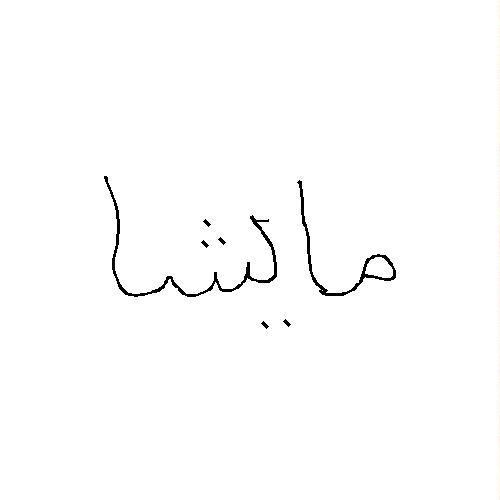 مايشا